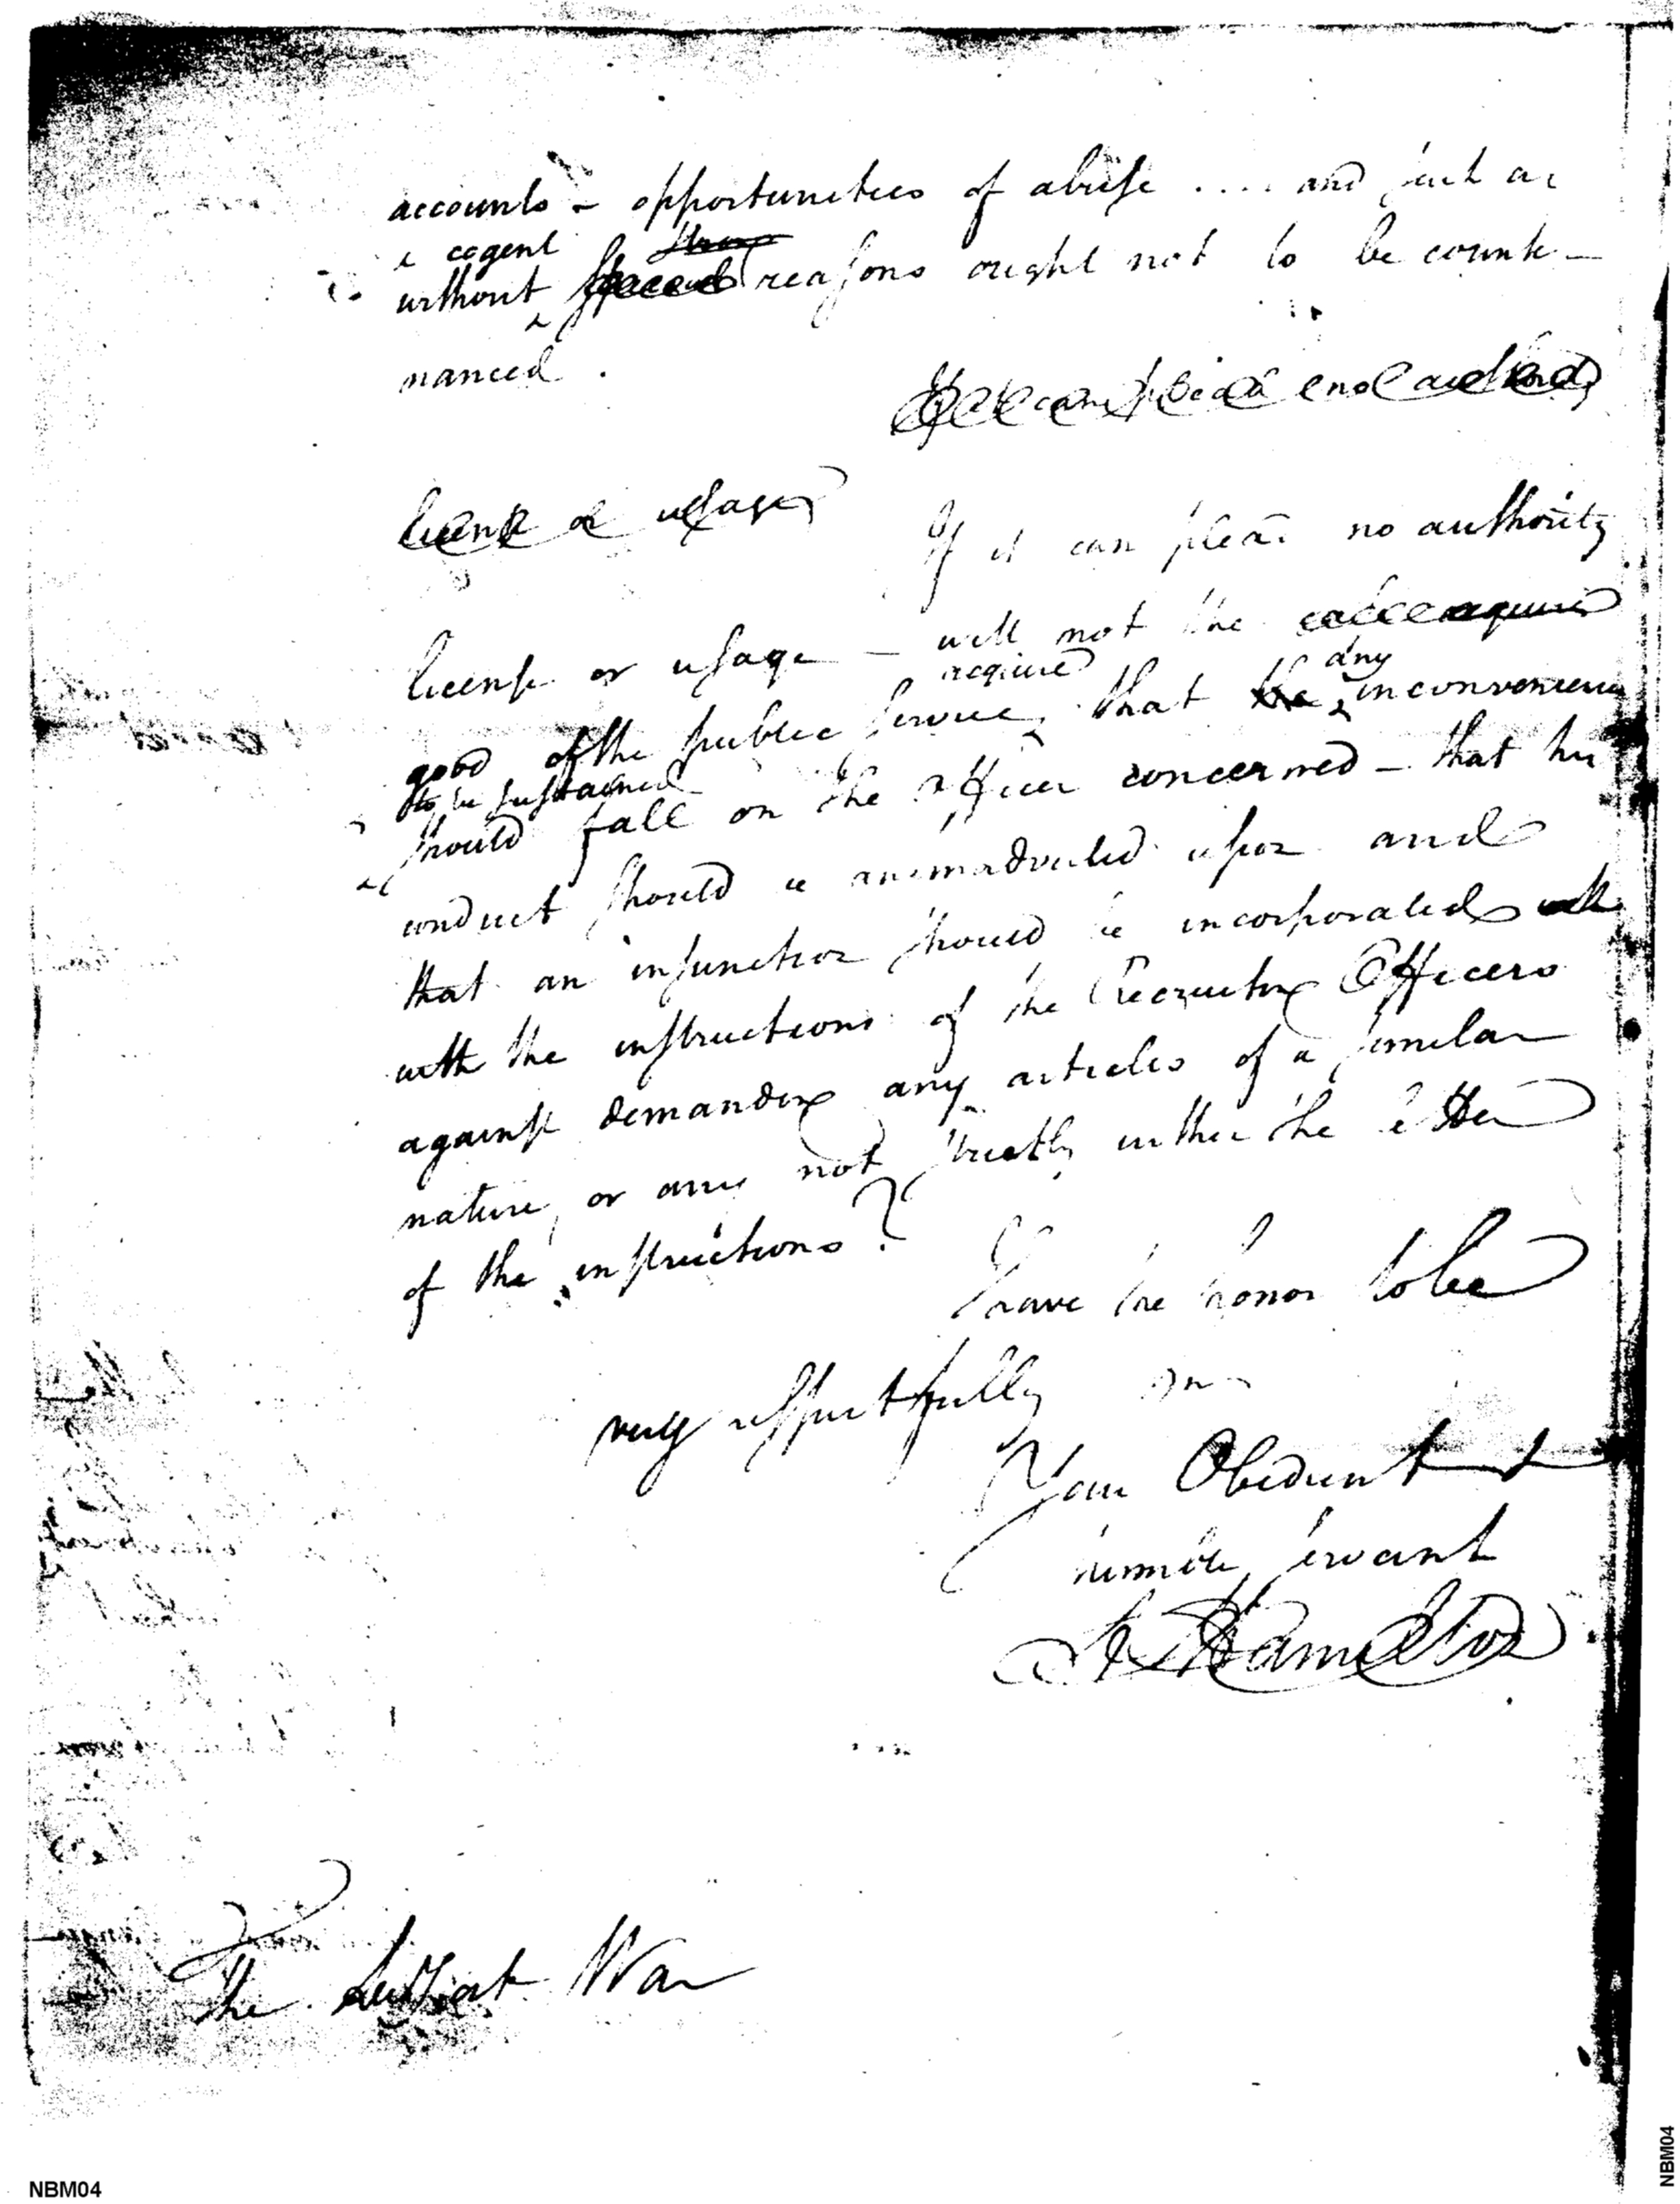 accounts – opportunities of abuse .... and such as
cogent
without reasons ought not to be counte-
nanced.
license or usage
If it can plead no authority
license or usage – will not the
require any
good of the public service, that the inconvenience
to be sustained
should fall on the officer concerned – that his
conduct should be animadverted upon and
that an injunction should be incorporated
with the instructions of the Recruiting Officers
against demanding any articles of a similar
nature, or any not strictly within the letter
of the instructions?
I have the honor to be
very respectfully
Your Obedient
humble servant
A Hamilton
The War
NBM04
NBM04